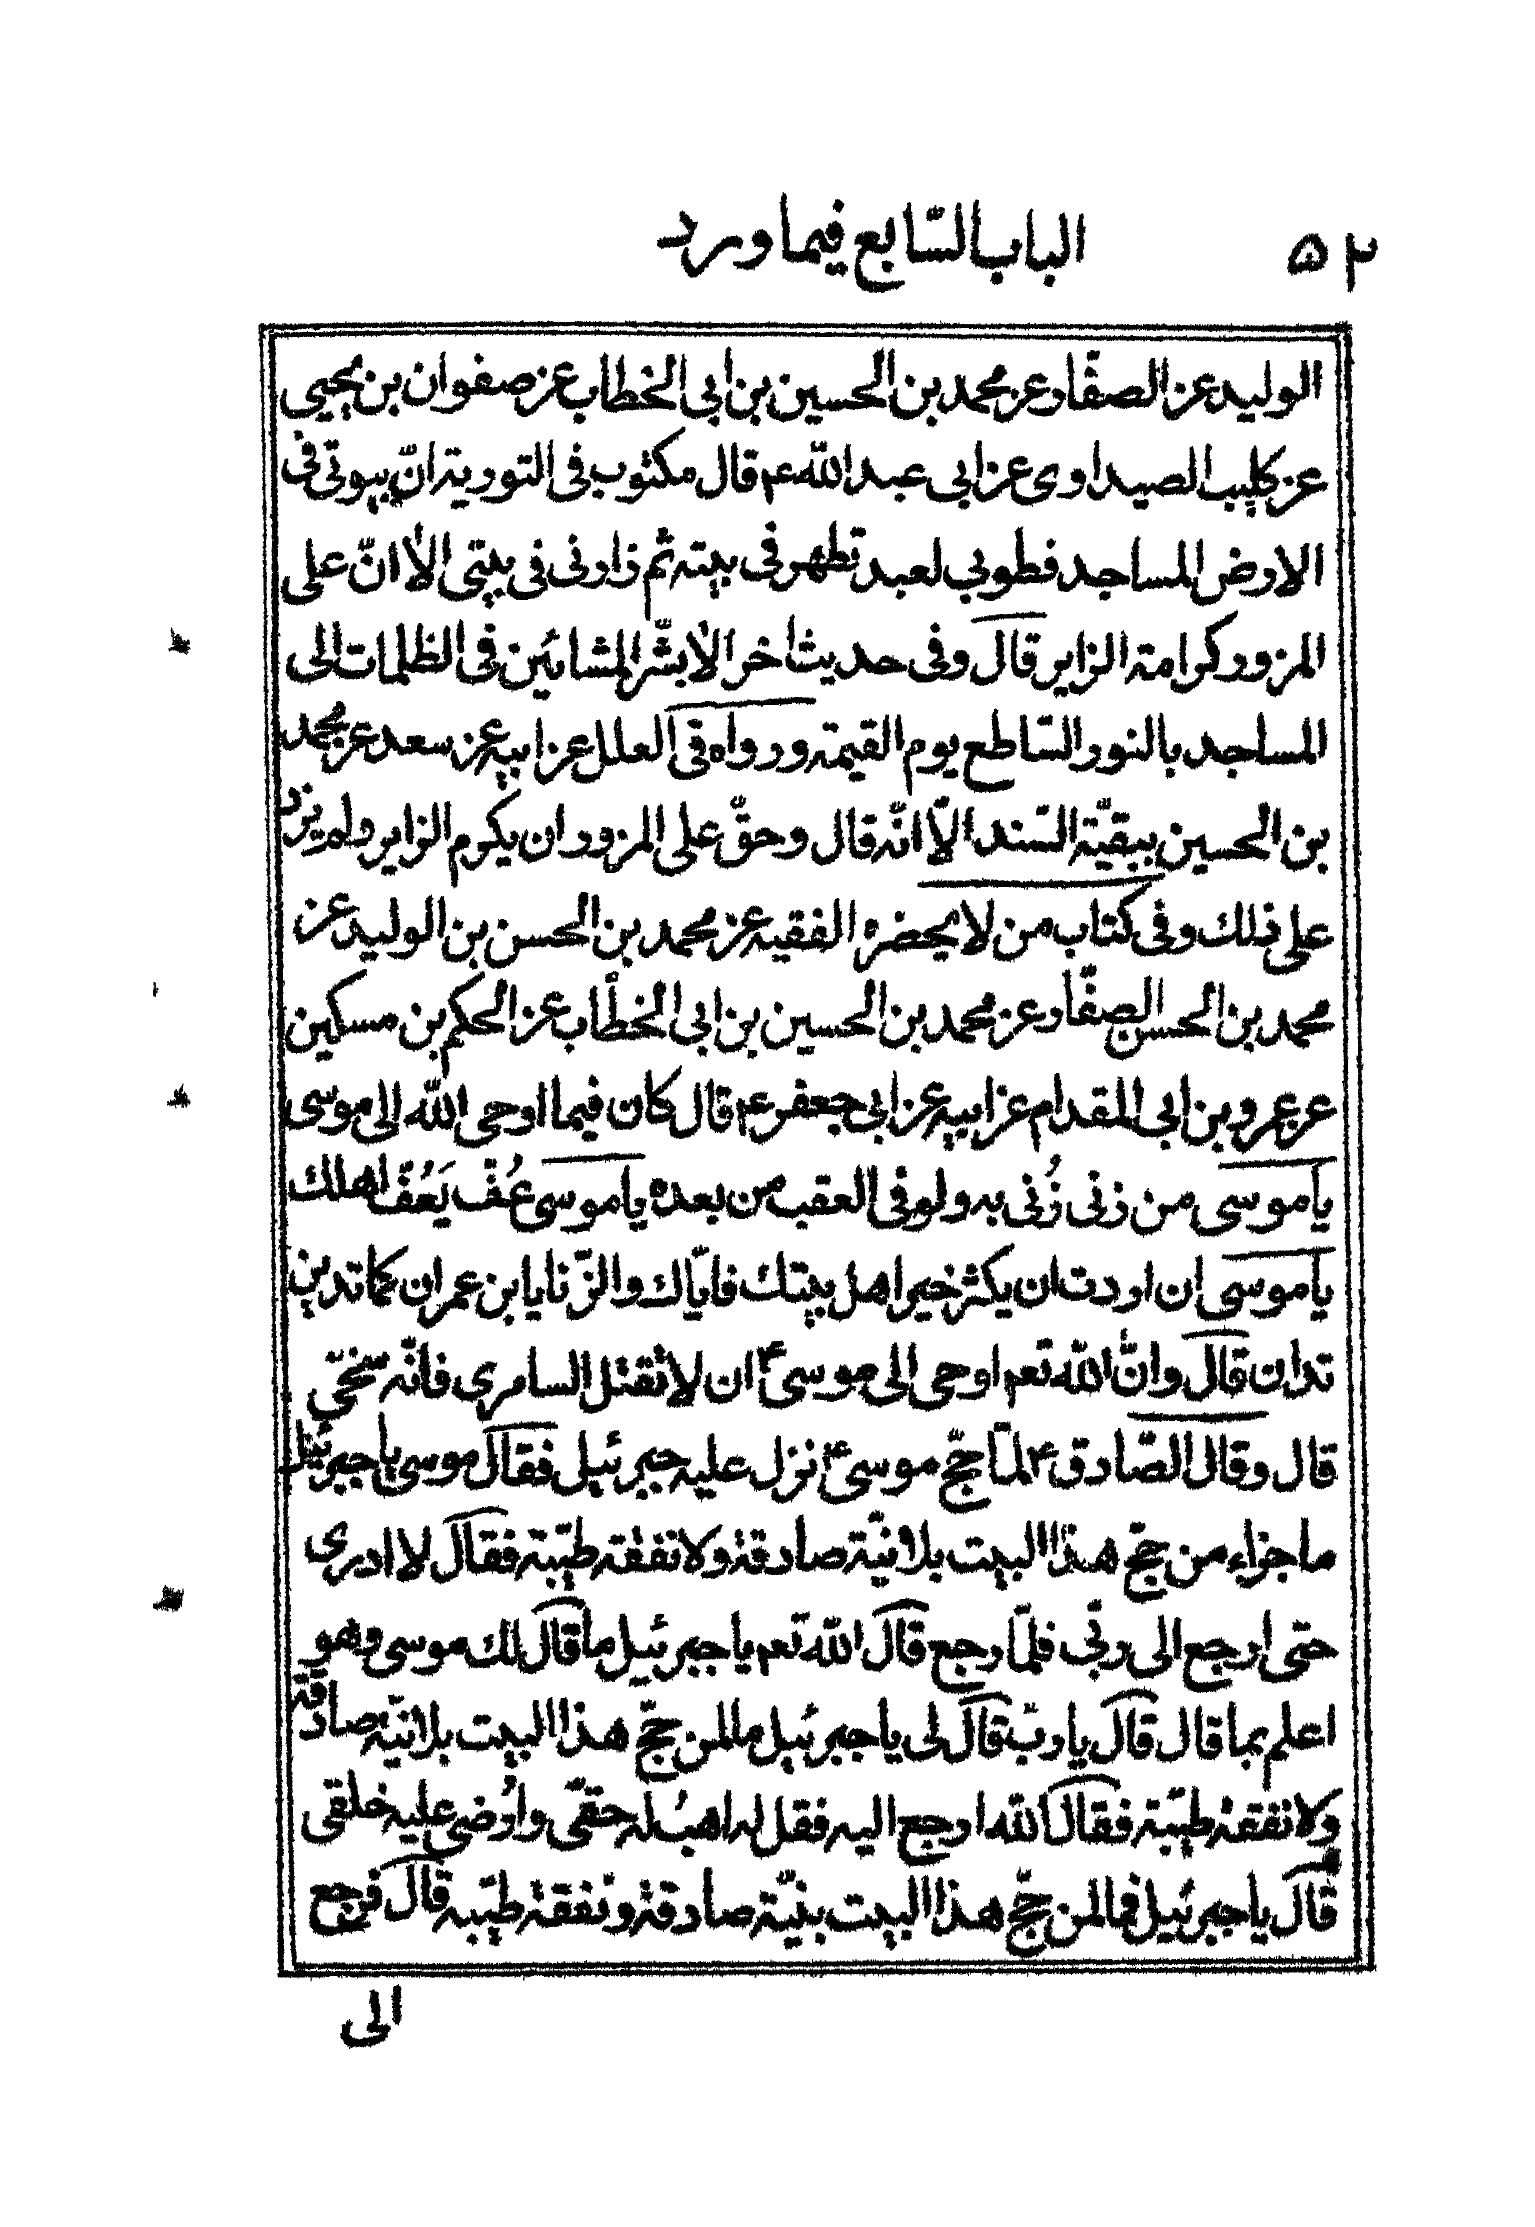 ۵۲
الباب السّابع فيما ورد
الوليد عن الصفّار عن محمد بن الحسين بن ابى الخطاب عن صفوان بن يحيى
عن كليب الصيداوى عن ابى عبد الله ع م قال مكتوب فى التورية انّ بيوتى فى
الارض المساجد فطوبى لعبد تطهر فى بيته ثم زارنى فى بيتى الا انّ على
المزور كرامة الزاير قال وفى حديث اخر الا بشّر المشائين فى الظلمات الى
المساجد بالنور السّاطع يوم القيمة ورواه فى العلل عن ابيه عن سعد عن محمد
بن الحسين ببقيّة السّند الّا انّه قال وحقّ على المزور ان يكرم الزاير ولم يزد
على ذلك وفى كتاب من لا يحضره الفقيه عن محمد بن الحسن بن الوليد عن
محمد بن الحسن الصفّار عن محمد بن الحسين بن ابى الخطّاب عن الحكم بن مسكين
عن عمرو بن ابى المقدام عن ابيه عن ابى جعفر ع م قال كان فيما اوحى الله الى موسى
يا موسى من زنى زُنى به ولو فى العقب من بعده يا موسى عُفّ يَعُفّ اهلك
يا موسى ان اردت ان يكثر خير اهل بيتك فايّاك والزّنا يا ابن عمران كما تدين
تدان قال وانّ الله تعم اوحى الى موسى ع م ان لا تقتل السامرى فانّه سخىّ
قال وقال الصّادق ع م لمّا حجّ موسى ع م نزل عليه جبرئيل فقال موسى يا جبرئيل
ما جزاء من حجّ هذا البيت بلا نيّة صادقة ولا نفقة طيّبة فقال لا ادرى
حتى ارجع الى ربّى فلمّا رجع قال الله تعم يا جبرئيل ما قال لك موسى وهو
اعلم بما قال قال يا ربّ قال لى يا جبرئيل ما لمن حجّ هذا البيت بلا نيّة صادقة
ولا نفقة طيّبة فقال الله ارجع اليه فقل له اهبُ له حقّى واُرضى عليه خلقى
قال يا جبرئيل فما لمن حجّ هذا البيت بنيّة صادقة ونفقة طيّبه قال فرجع
الى